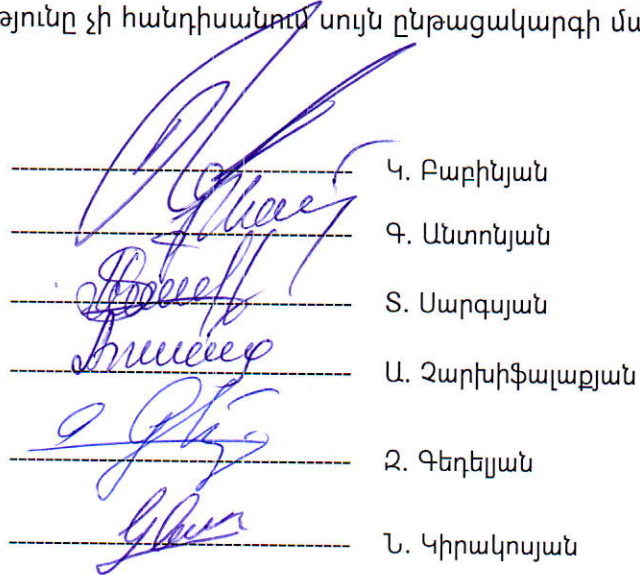 թյունը չի հանդիսանում սույն ընթացակարգի մա
Կ. Բաբինյան
Գ. Անտոնյան
Տ. Սարգսյան
Ա. Չարխիֆալաքյան
Զ. Գեդելյան
Ն. Կիրակոսյան